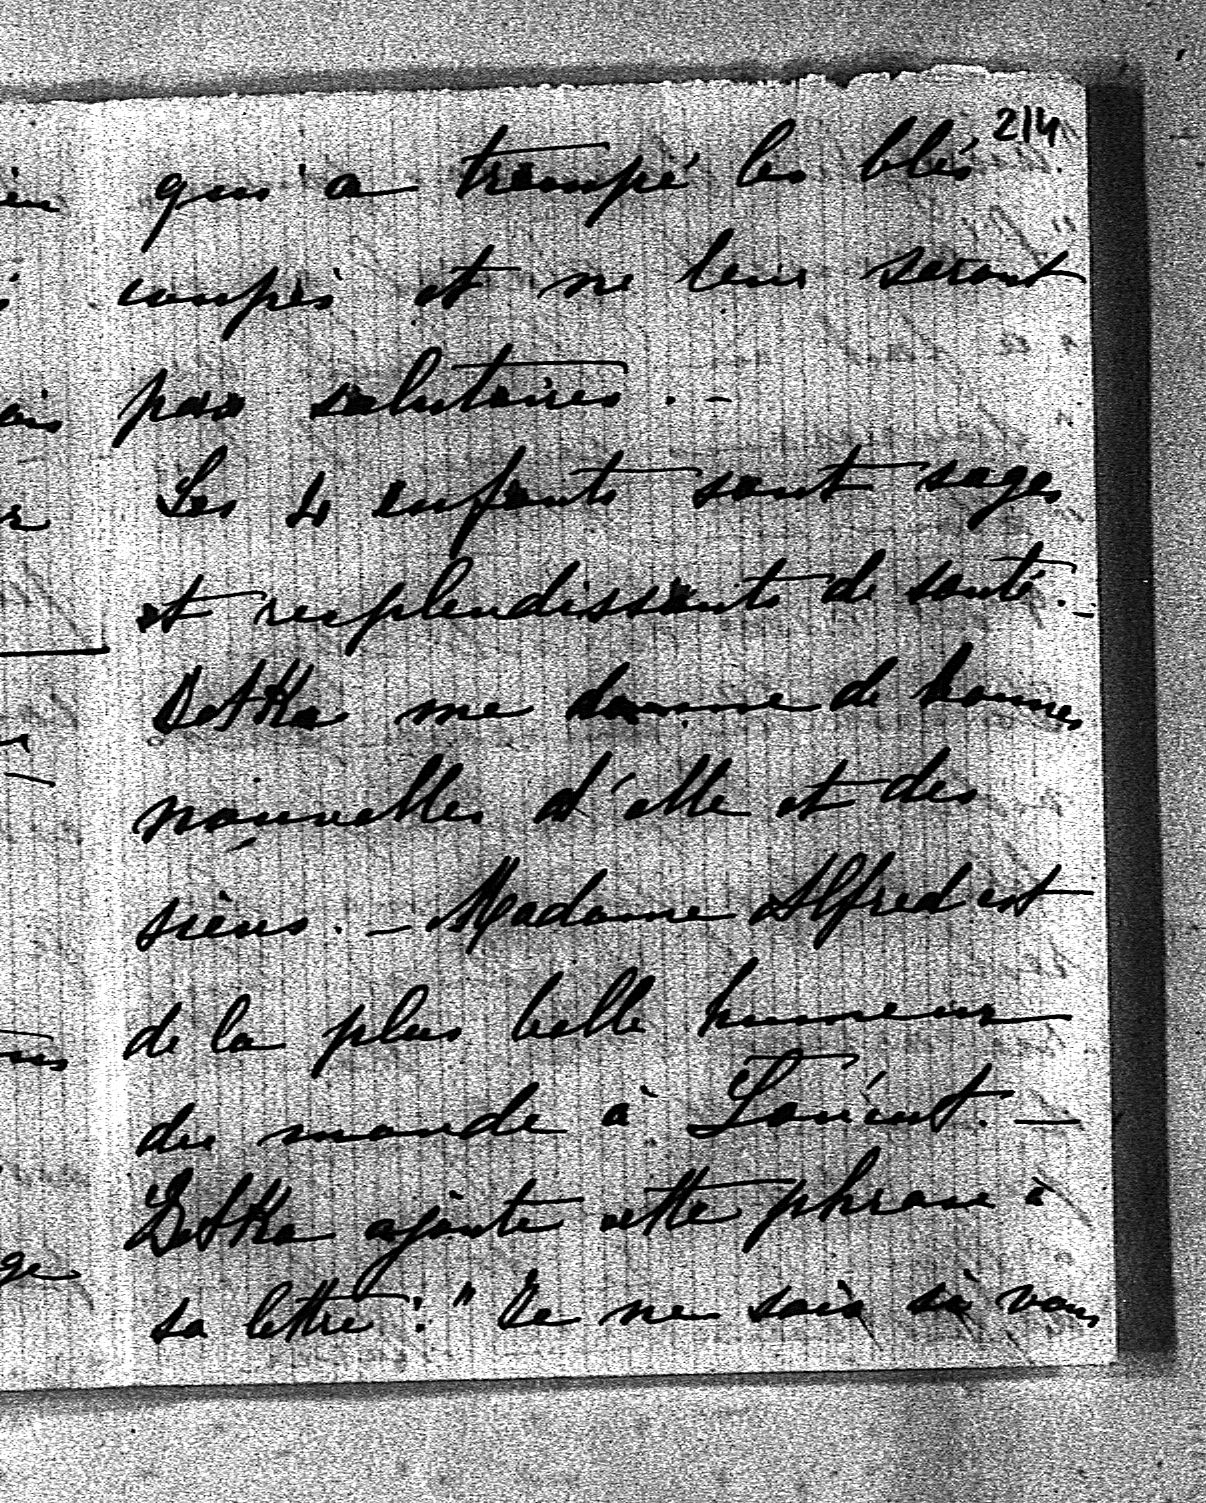 214
qui a trempé les blés
coupés et ne leur seront
pas salutaires. -
Les 4 enfants sont sages
et resplendissants de santé. -
Detka me donne de bonnes
nouvelles d'elle et des
siens. - Madame Alfred est
de la plus belle humeur
du monde à Lorient. -
Detka ajoute cette phrase à
sa lettre : " Je ne sais si vous